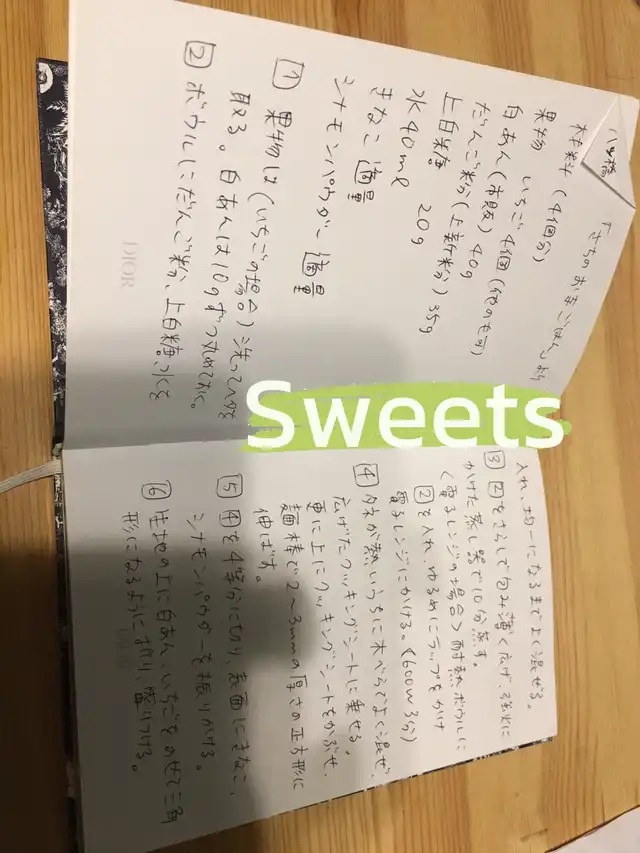 八ッ橋
「きちのおままごはん」より
材料(4個分)
果物 いちご4個(他のも可)
白あん(市販)40g
だんご粉(上新粉)35g
上白糖 20g
水40ml
きなこ 適量
シナモンパウダー 適量
1 果物は(いちごの場合)洗ってヘタを
取る。白あんは10gずつ丸めておく。
2 ボウルにだんご粉、上白糖、水を
DIOR
入れ、均一になるまでよく混ぜる。
3 2をさらしで包み薄く広げ、強火に
かけた蒸し器で10分蒸す。
<電子レンジの場合>耐熱ボウルに
2を入れ、ゆるめにラップをかけ
電子レンジにかける。(600W3分)
4 タネが熱いうちに木べらでよく混ぜ、
広げたクッキングシートに乗せる。
更に上にクッキングシートをかぶせ、
麺棒で2~3mmの厚さの正方形に
伸ばす。
5 4を4等分に切り、表面にきなこ、
シナモンパウダーを振りかける。
6 生地の上に白あん、いちごをのせて三角
形になるように折り、盛りつける。
Sweets